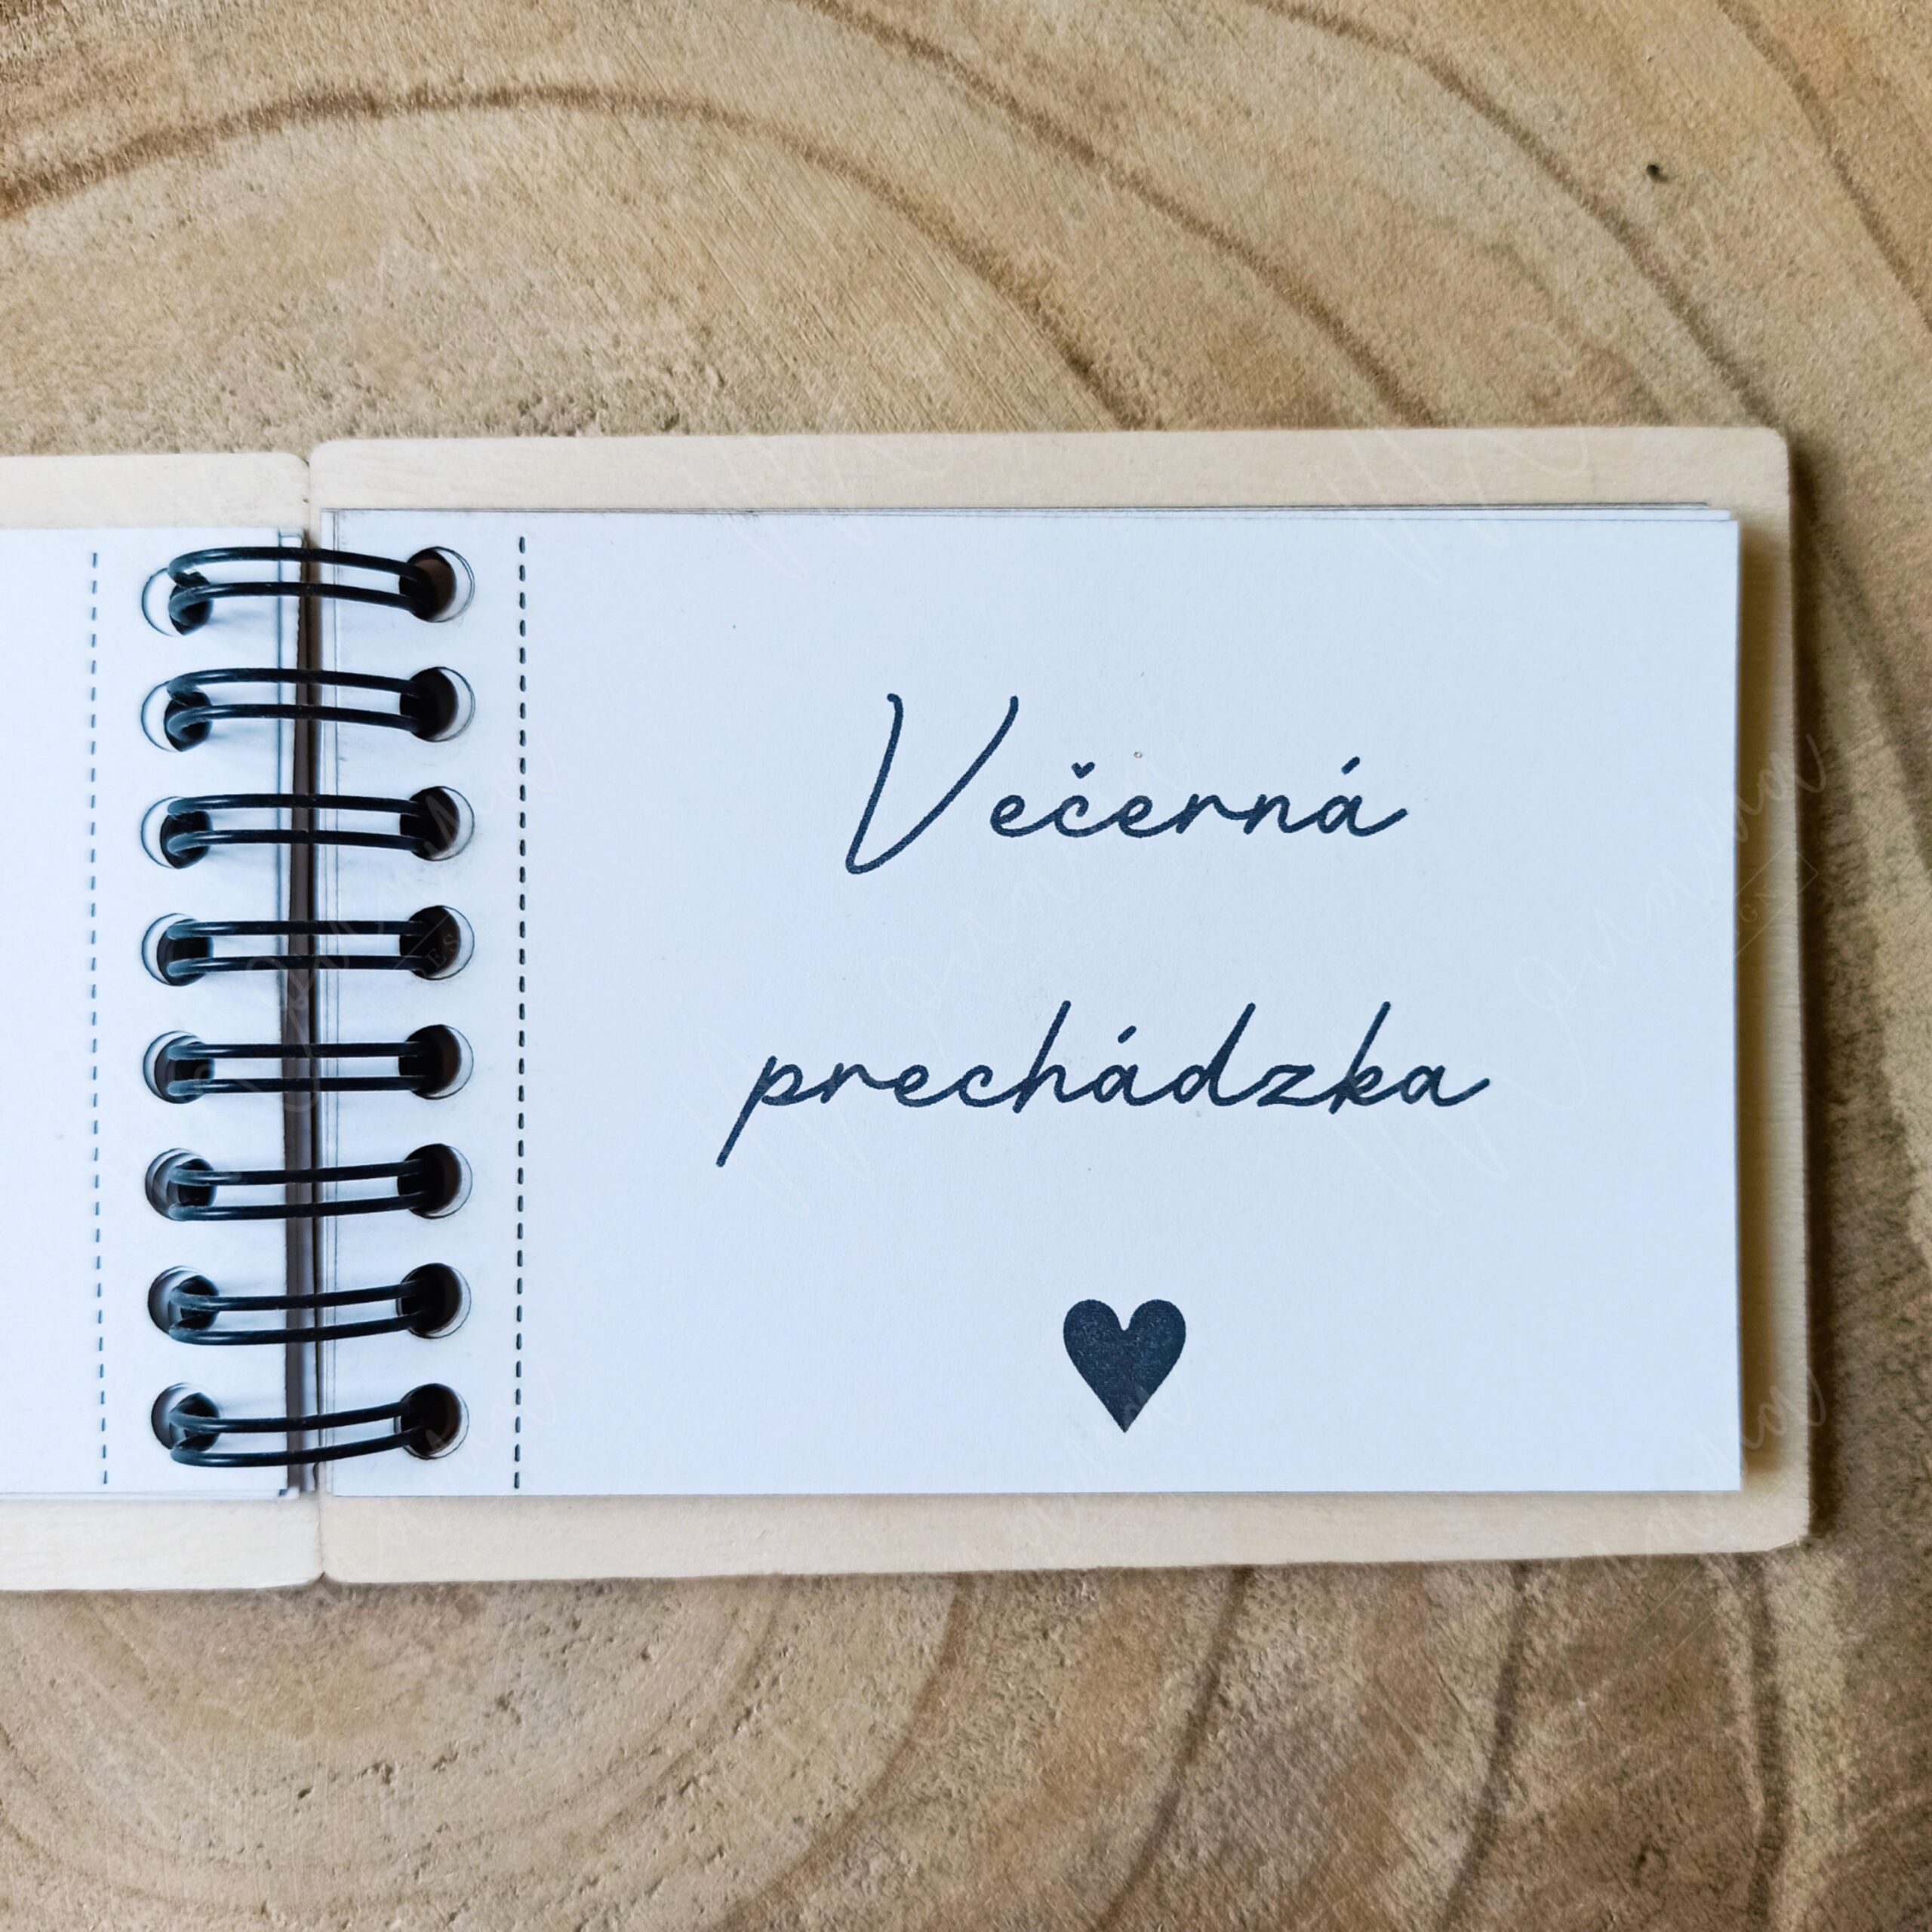 Večerná
prechádzka